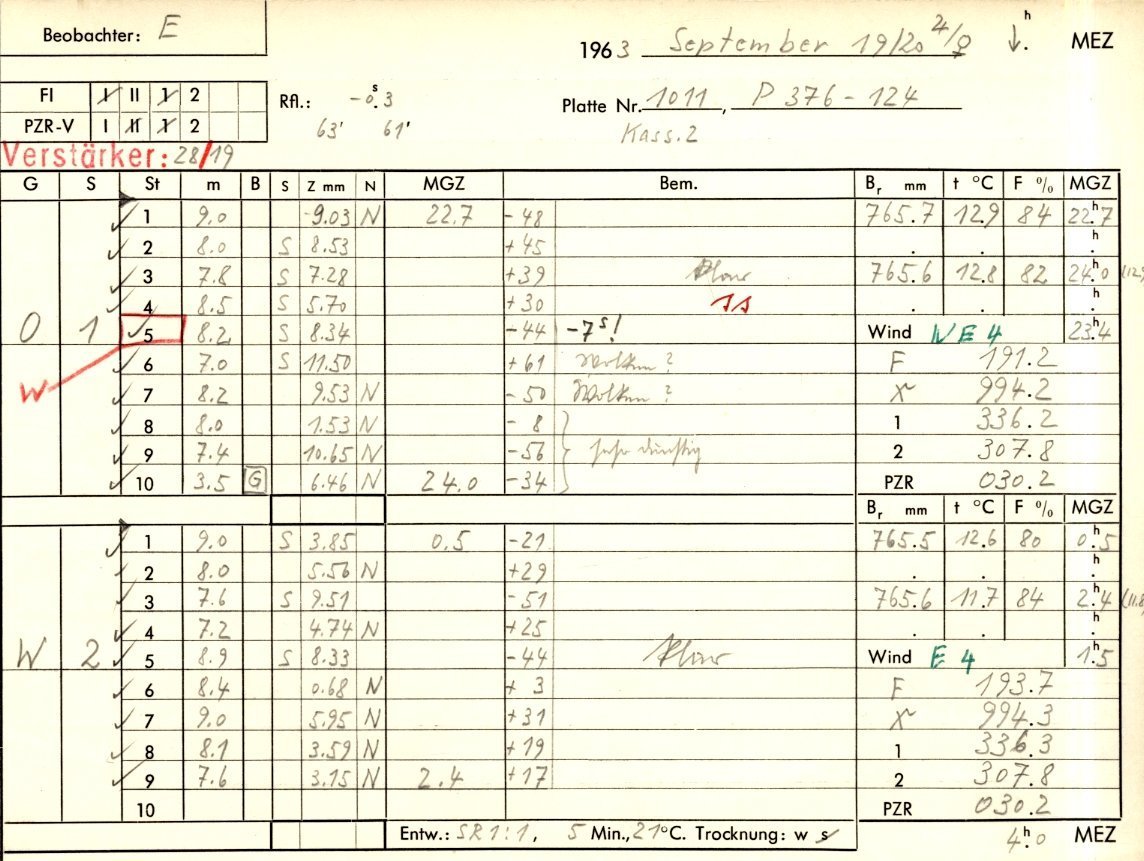 Beobachter: E
1963 September 19/20 4/♀ ↓.h MEZ
FI 1 II 1 2
PZR-V I II 1 2
Rfl.: -0.s3
63' 61'
Platte Nr. 1011, P 376-124
Kass. 2
Verstärker: 28/19
G S St m B S Z mm N MGZ Bem. Br mm t °C F % MGZ
1 9.0 9.03 N 22.7 -48 765.7 12.9 84 22.h7
2 8.0 S 8.53 +45 . . h.
3 7.8 S 7.28 +39 klar 765.6 12.8 82 24.h0
4 8.5 S 5.70 +30 . . h.
O 1 5 8.2 S 8.34 -44 -7s! Wind NE 4 23.h4
6 7.0 S 11.50 +61 Wolken? F 191.2
W 7 8.2 9.53 N -50 Wolken? 994.2
8 8.0 1.53 N -8 1 336.2
9 7.4 10.65 N -56 sehr dunstig 2 307.8
10 3.5 G 6.46 N 24.0 -34 PZR 030.2
Br mm t °C F % MGZ
1 9.0 S 3.85 0.5 -21 765.5 12.6 80 0.h5
2 8.0 5.56 N +29 . . h.
3 7.6 S 9.51 -51 765.6 11.7 84 2.h4
4 7.2 4.74 N +25 . . h.
W 2 5 8.9 S 8.33 -44 klar Wind E 4 1.h5
6 8.4 0.68 N +3 F 193.7
7 9.0 5.95 N +31 994.3
8 8.1 3.59 N +19 1 336.3
9 7.6 3.15 N 2.4 +17 2 307.8
10 PZR 030.2
Entw.: SR 1:1, 5 Min., 21°C. Trocknung: w s 4.h0 MEZ